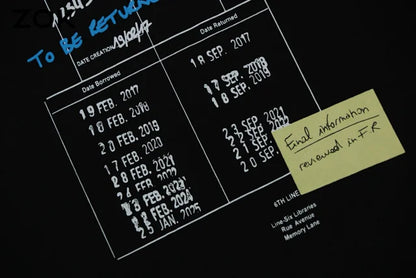 TO BE RETURNE
DATE CREATION 19/02/17
Date Borrowed
Date Returned
19 FEB. 2017
16 FEB. 2018
20 FEB. 2019
17 FEB. 2020
28 FEB. 2021
24 FEB. 2022
FEB. 2023
FEB. 2024
25 JAN. 2025
18 SEP. 2017
17 SEP. 2018
18 SEP. 2019
23 SEP. 2021
22 SEP. 2022
21 SEP.
20 SEP.
Final information
reviewed in FR
6TH LINE
Line-Six Libraries
Rue Avenue
Memory Lane